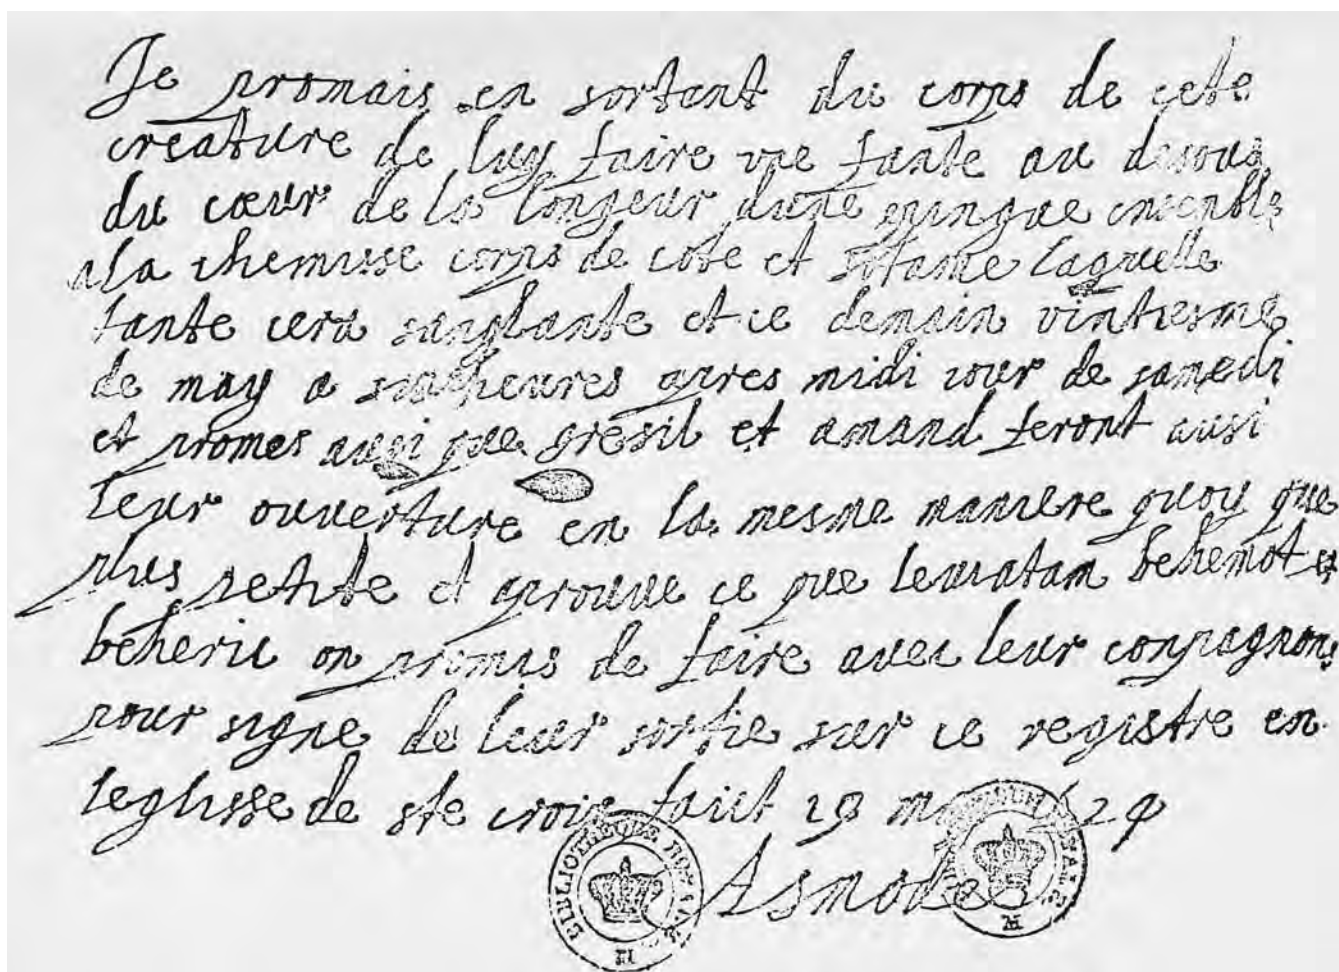 Je promais en sortant du corps de cete
creature de luy faire vne fante au desous
du cœur de la longeur dune epingue ensenble
a la chemisse corps de cote et sotane laquelle
fante cera sanglante et ce demain vintiesme
de may a sinc heures apres midi iour de samedi
et promes ausi que gresil et amand feront ausi
leur ouverture en la mesme maniere quoy que
plus petite et aprouve ce que leuiatam behemot et
beherie on promis de faire avec leur conpagnons
pour signe de leur sortie sur ce registre en
leglisse de ste croix faict 19 may 1629
Asmodee
BIBLIOTHEQUE